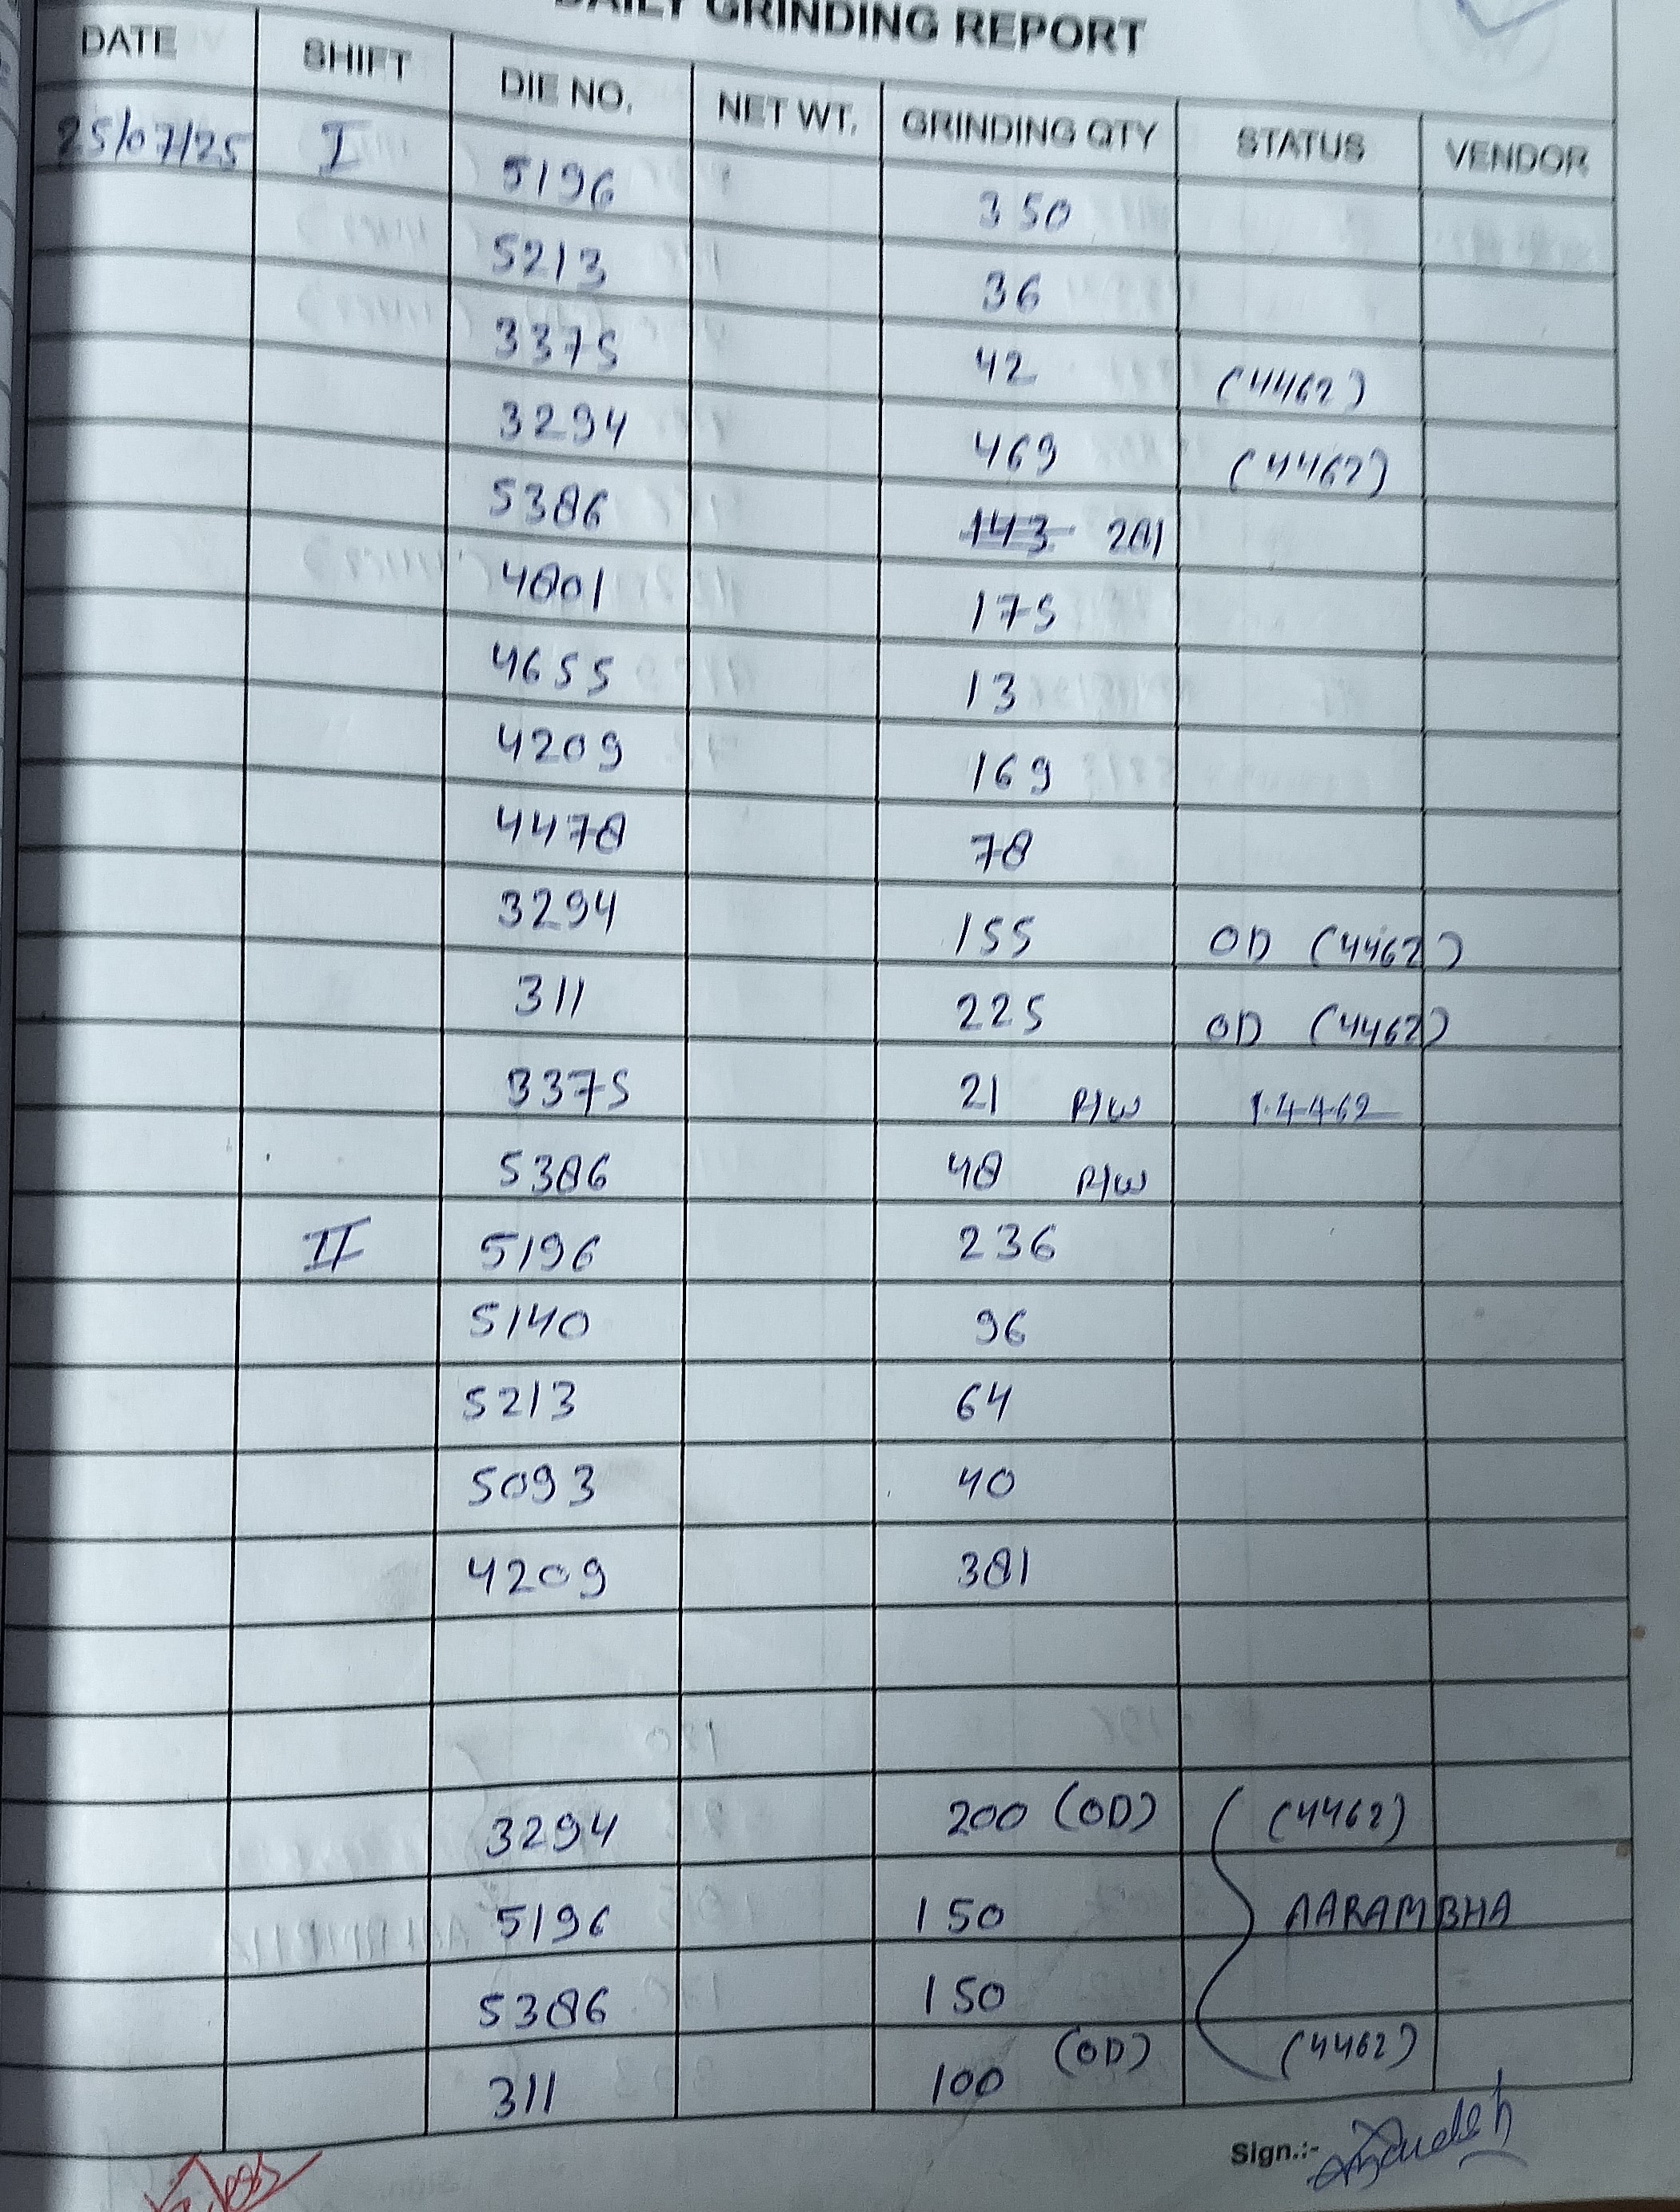 DAILY GRINDING REPORT
DATE SHIFT DIE NO. NET WT. GRINDING QTY STATUS VENDOR
25/07/25 I 5196 350
5213 36
3375 42 (4462)
3294 469 (4462)
5386 143 281
4801 175
4655 13
4209 169
4478 78
3294 155 OD (4462)
311 225 OD (4462)
3375 21 R/W 4462
5386 48 R/W
II 5196 236
5140 96
5213 64
5093 40
4209 381
3294 200 (OD) (4462)
5196 150 AARAMBHA
5386 150
311 100 (OD) (4462)
Sign.:-